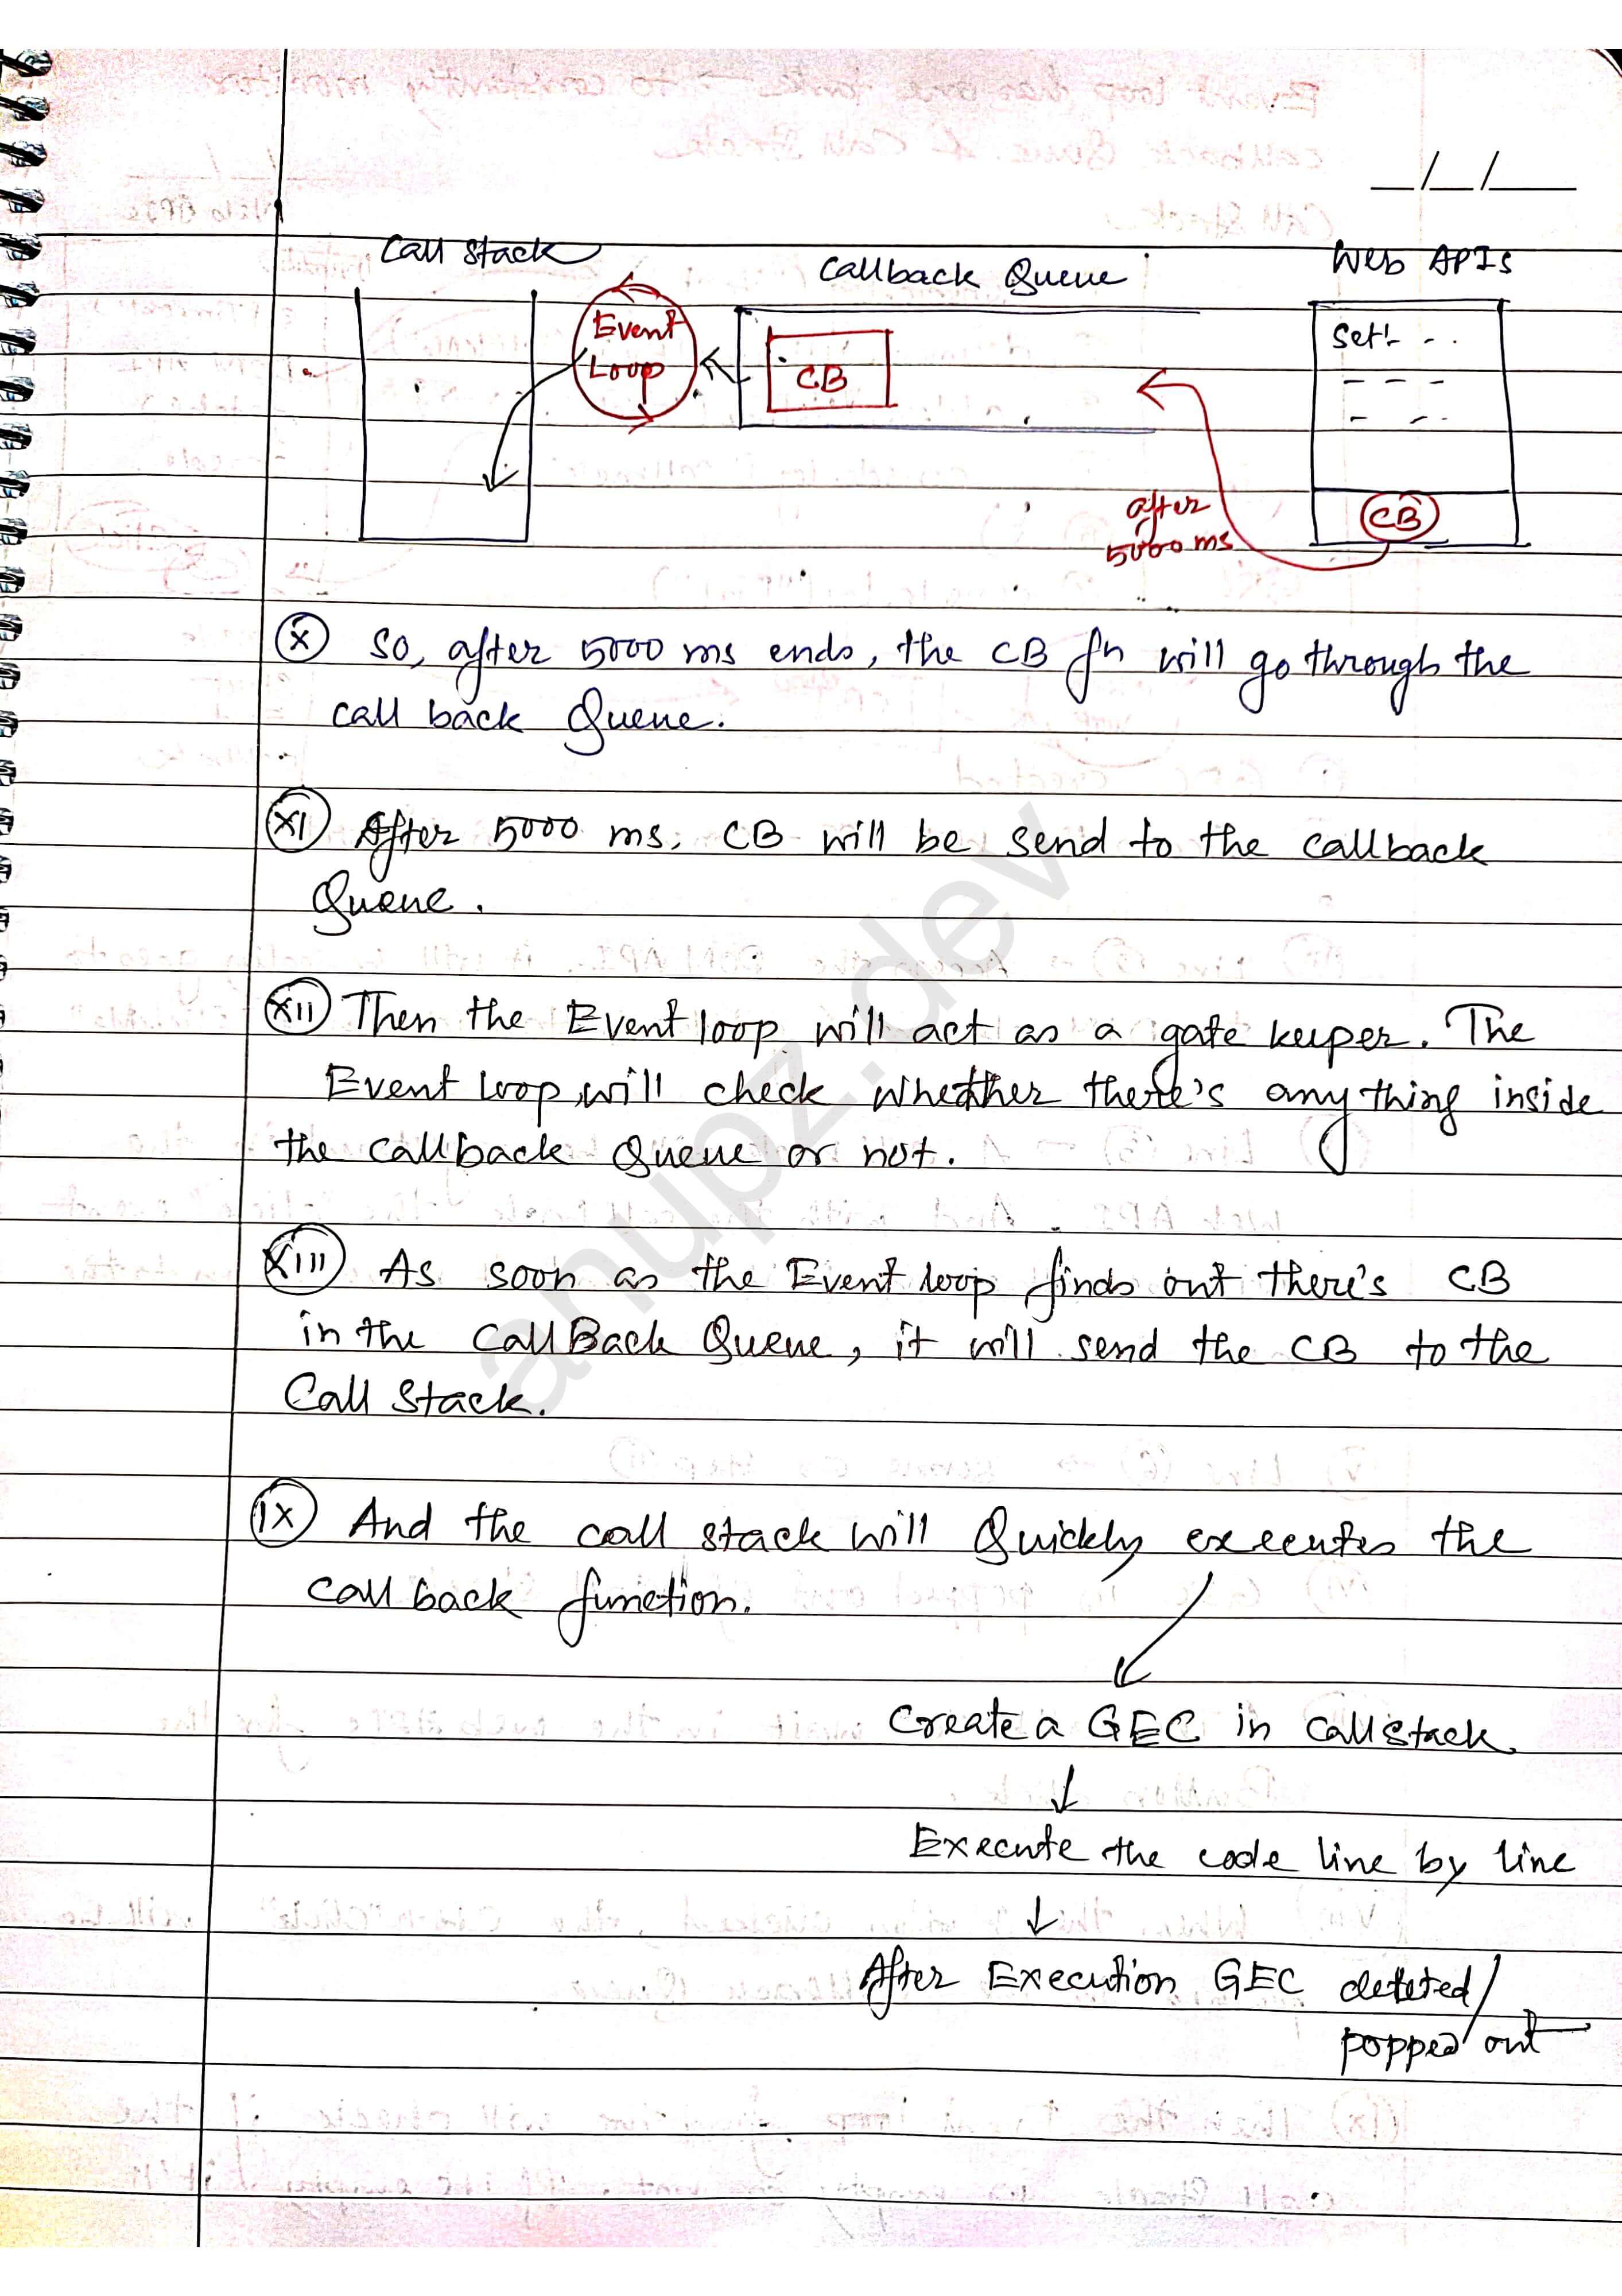 _/_/__
Call Stack
Callback Queue
Web APIs
Event
Loop
CB
Set
CB
after
5000 ms
(X) So, after 5000 ms ends, the CB fn will go through the
call back Queue.
(XI) After 5000 ms, CB will be send to the callback
Queue.
(XII) Then the Event loop will act as a gate keeper. The
Event loop, will check whether there's anything inside
the callback Queue or not.
(XIII) As soon as the Event loop finds out there's CB
in the CallBack Queue, it will send the CB to the
Call Stack.
(IX) And the call stack will Quickly executes the
call back function.
Create a GEC in callstack
↓
Execute the code line by line
↓
After Execution GEC deleted/
popped out
anupz.dev